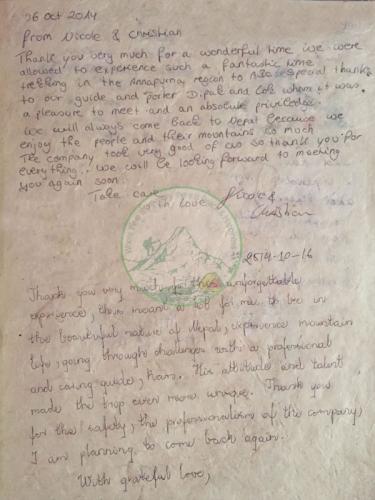 26 Oct 2014
From Nicole & Christian
Thank you very much for a wonderful time we were
allowed to experience such a fantastic time
trekking in the Annapurna region to ABC. Special thanks
to our guide and porter Dipak and whom it was
a pleasure to meet and an absolute priviledge.
We will always come back to Nepal because we
enjoy the people and their mountains so much
The company took very good of us so thank you for
everything. We will be looking forward to meeting
you again soon.
Take care in love Nicole &
Christian
2014-10-16
Thank you very much for this unforgettable
experience, this meant a lot for me to be in
the beautiful nature of Nepal, experience mountain
life, going through challenges with a professional
and caring guide, Ram. His attitude and talent
made the trip even more unique. Thank you
for the safety, the professionalism of the company,
I am planning to come back again.
With grateful love,